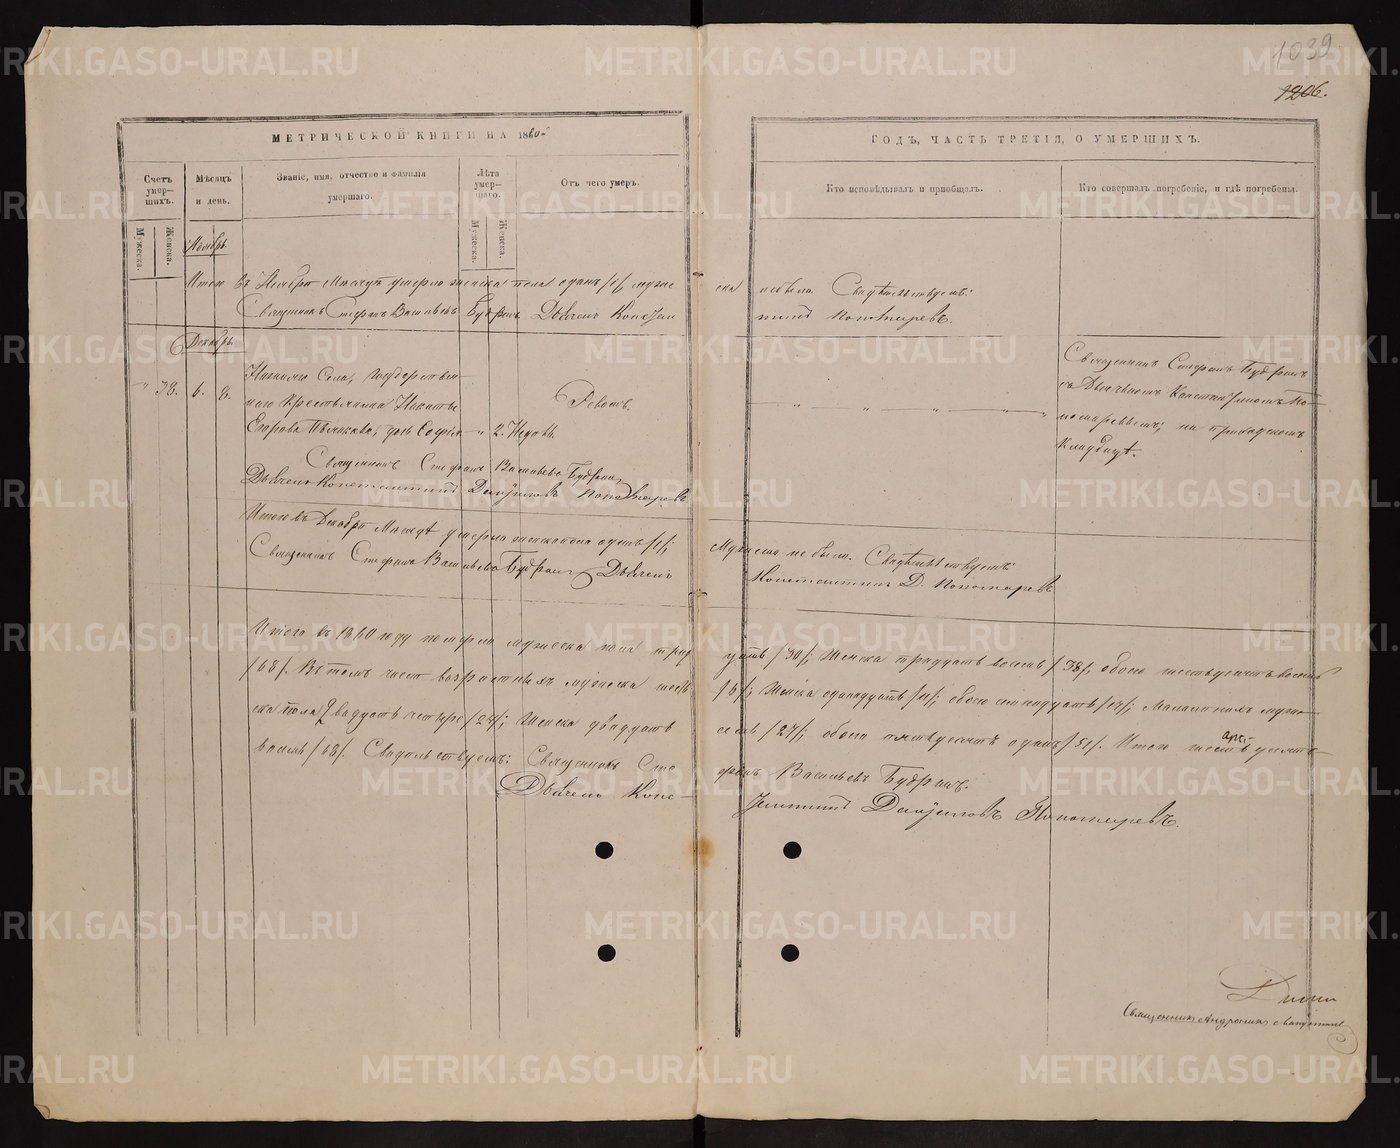 1039
1206.
МЕТРИЧЕСКОЙ КНИГИ НА 1860й
ГОДЪ, ЧАСТЬ ТРЕТІЯ, О УМЕРШИХЪ.
Счетъ умер-шихъ.
Мужеска.
Женска.
Мѣсяцъ и день.
Званіе, имя, отчество и фамилія умершаго.
Лѣта умер-шаго.
Мужеска.
Женска.
Отъ чего умеръ.
Кто исповѣдывалъ и пріобщалъ.
Кто совершалъ погребеніе, и гдѣ погребены.
Ноябрь
Итого въ Ноябрѣ Мѣсяцѣ умерло женска пола одинъ /1/, муже
ска небыло. Свидѣтельствуемъ:
Священникъ Стефанъ Васильевъ Будринъ Дьяченъ Констан
тинъ Пономаревъ.
Декабрь
" 38. 6. 8.
Села, Государствен-
наго Крестьянина
Егорова дочь Софія " 2. Недѣль.
Ревомъ.
" " " " " "
Священникъ Стефанъ Будринъ
съ Дьячкомъ Константиномъ По-
номаревымъ; на приходскомъ
кладбищѣ.
Священникъ Стефанъ Васильевъ Будринъ
Дьяченъ Константинъ Пономаревъ
Итого въ Декабрѣ Мѣсяцѣ умерло женска пола одинъ /1/;
Мужеска не было. Свидѣтельствуемъ:
Священникъ Стефанъ Васильевъ Будринъ Дьяченъ
Константинъ Д. Пономаревъ
Итого въ 1860 году померло мужеска пола трид
цать /30/, Женска тридцать восемь /38/, обоего шестьдесятъ восемь
/68/. Въ томъ числѣ возрастныхъ мужеска шесть
/6/; Женска одинадцать /11/; обоего семнадцать /17/; Малолѣтнихъ муже-
ска пола двадцать четыре /24/; Женска двадцать
семь /27/; обоего пятьдесятъ одинъ /51/. Итого шестьдесятъ
восемь /68/. Свидѣтельствуемъ: Священникъ Сте
фанъ Васильевъ Будринъ.
Дьяченъ Конс-
тантинъ Пономаревъ.
Священникъ Андроникъ
METRIKI.GASO-URAL.RU